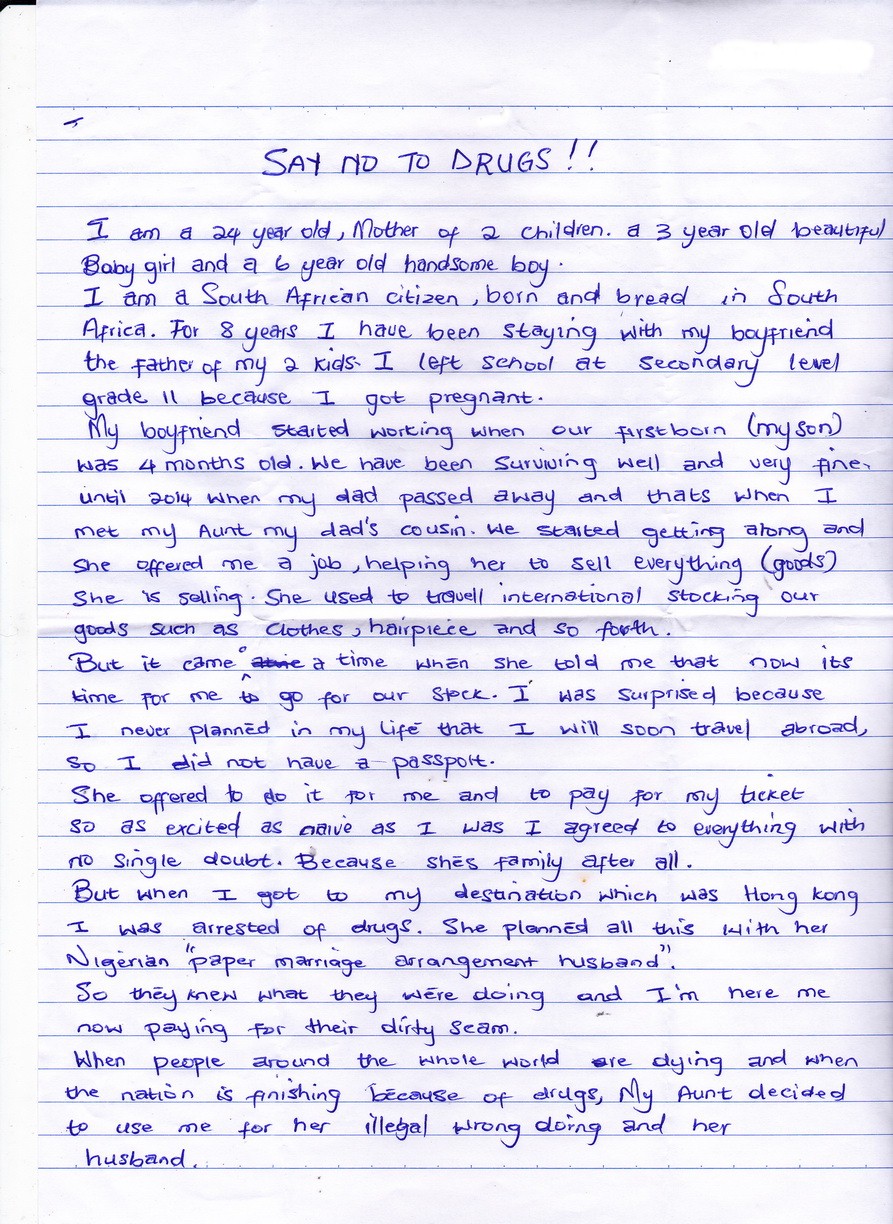 SAY NO TO DRUGS!!
I am a 24 year old, Mother of 2 children. a 3 year old beautiful
Baby girl and a 6 year old handsome boy.
I am a South African citizen, born and bread in South
Africa. For 8 years I have been staying with my boyfriend
the father of my 2 kids. I left school at secondary level
grade 11 because I got pregnant.
My boyfriend started working when our firstborn (my son)
was 4 months old. We have been surviving well and very fine.
until 2014 when my dad passed away and thats when I
met my Aunt my dad's cousin. We started getting along and
she offered me a job, helping her to sell everything (goods)
She is selling. She used to travell international stocking our
goods such as clothes, hairpiece and so forth.
But it came a time when she told me that now its
time for me to go for our stock. I was surprised because
I never planned in my life that I will soon travel abroad,
so I did not have a passport.
She offered to do it for me and to pay for my ticket
so as excited as naive as I was I agreed to everything with
no single doubt. Because shes family after all.
But when I got to my destination which was Hong kong
I was arrested of drugs. She planned all this with her
Nigerian "paper marriage arrangement husband".
So they knew what they were doing and I'm here me
now paying for their dirty scam.
When people around the whole world are dying and when
the nation is finishing because of drugs, My Aunt decided
to use me for her illegal wrong doing and her
husband.